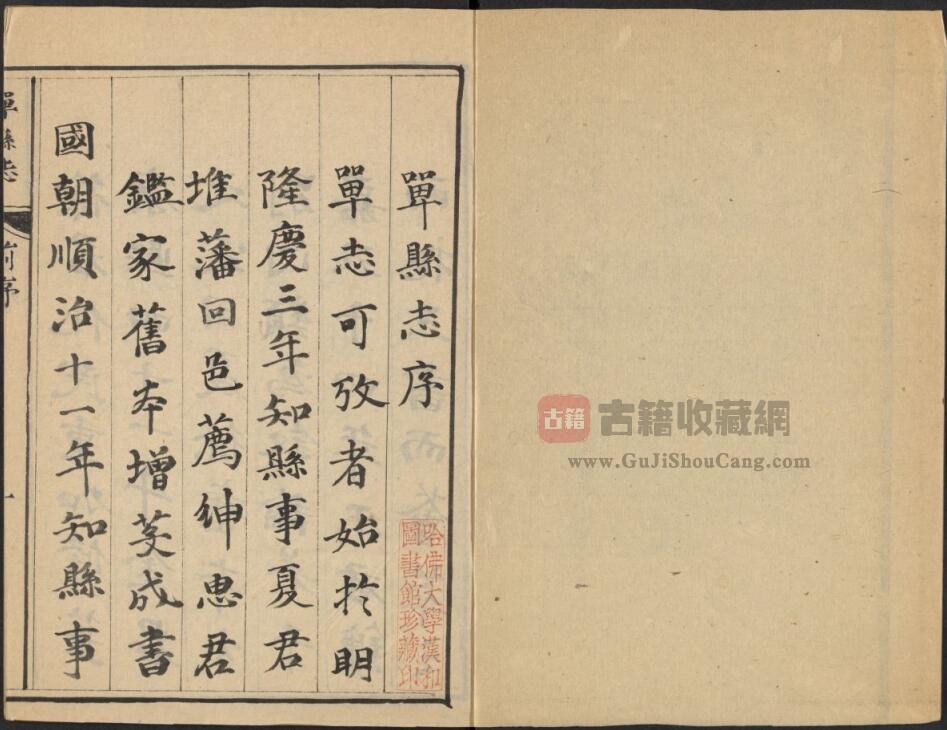 單縣志序
單志可攷者始於明
隆慶三年知縣事夏君
堆藩回邑薦紳惠君
鑑家舊本增芟成書
國朝順治十一年知縣事
單縣志
前序
一
哈佛大學漢和
圖書館珍藏印
古籍
古籍收藏網
www.GuJiShouCang.com